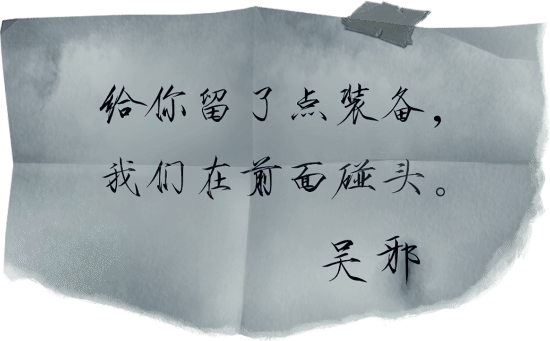 给你留了点装备，
我们在前面碰头。
吴邪